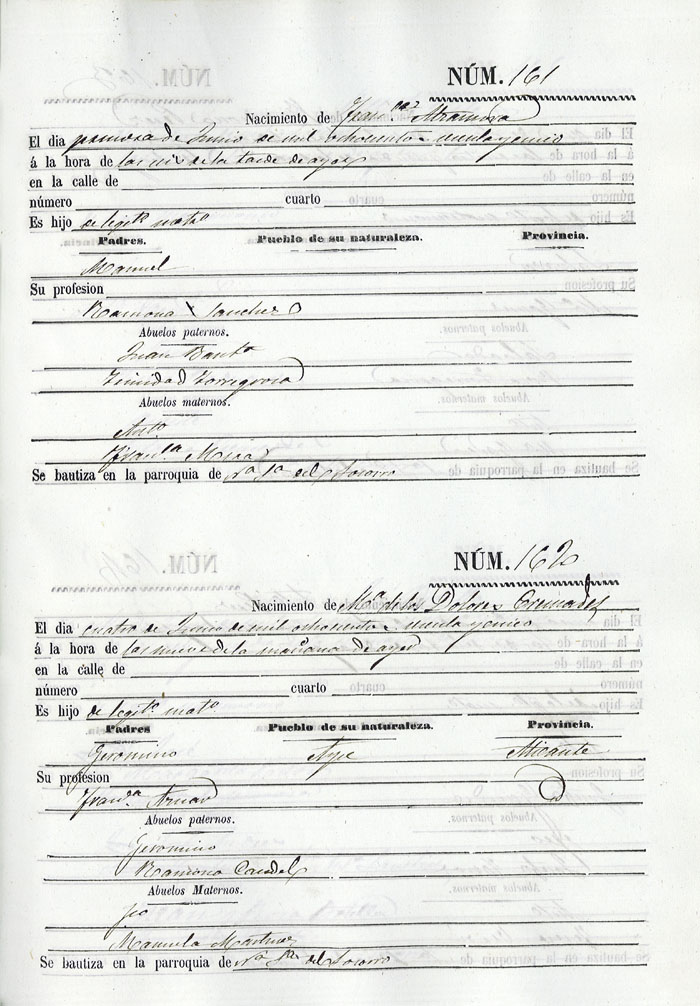 NÚM. 161
Nacimiento de Fran.co Altamira
El dia primero de Junio de mil ochocientos
á la hora de las seis de la tarde de ayer
en la calle de
número cuarto
Es hijo de legit.o mat.o
Padres. Pueblo de su naturaleza. Provincia.
Manuel
Su profesion
Ramona Sanchez
Abuelos paternos.
Juan Baut.a
Trinidad Torregrosa
Abuelos maternos.
Ant.o
Fran.ca
Se bautiza en la parroquia de N.a S.a del Socorro
NÚM. 162
Nacimiento de M.a de los Dolores Cremades
El dia cuatro de Junio de mil ochocientos
á la hora de las nueve de la mañana de ayer
en la calle de
número cuarto
Es hijo de legit.o mat.o
Padres Pueblo de su naturaleza. Provincia.
Geronimo Aspe Alicante
Su profesion
Fran.ca Aznar
Abuelos paternos.
Geronimo
Ramona Candel
Abuelos Maternos.
Manuela Martinez
Se bautiza en la parroquia de N.a S.a del Socorro